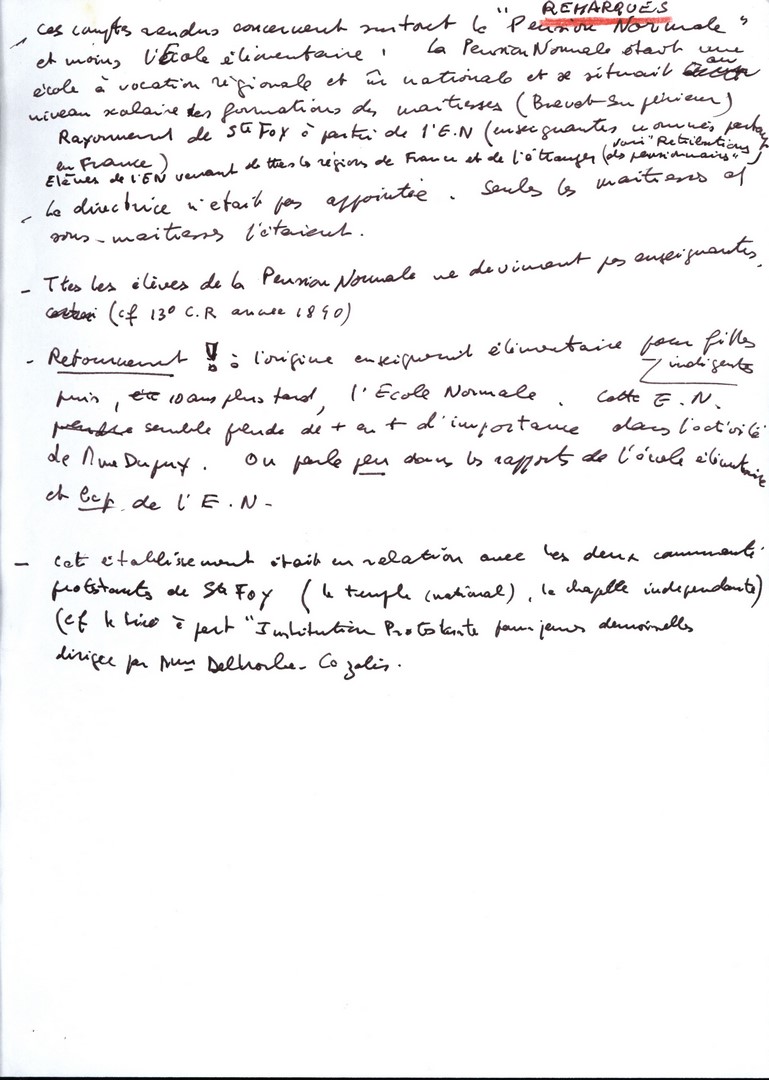 REMARQUES
- Ces comptes rendus concernent surtout la "Pension Normale"
et moins l'École élémentaire ; la Pension Normale était une
école à vocation régionale et nationale et se situait au
niveau scolaire des formations des maitresses (Brevet Supérieur)
Rayonnement de Ste Foy à partir de l'E.N (enseignantes nommées partout
en France)
Elèves de l'EN venant de ttes les régions de France et de l'étranger (voir "Retributions
des pensionnaires")
- La directrice n'était pas appointée. Seules les maitresses et
sous-maitresses l'étaient.
- Ttes les élèves de la Pension Normale ne devinrent pas enseignantes
(cf 13° C.R année 1890)
- Retournement ! : à l'origine enseignement élémentaire pour filles
indigentes
puis, 10 ans plus tard, l'Ecole Normale. Cette E.N.
semble prendre de + en + d'importance dans l'activité
de Mme Dupuy. On parle peu dans les rapports de l'école élémentaire
et bcp de l'E.N-
- Cet établissement était en relation avec les deux communautés
protestantes de Ste Foy (le temple (national), la chapelle indépendante)
(cf le livre à part "Institution Protestante pour jeunes demoiselles
dirigée par Mmes